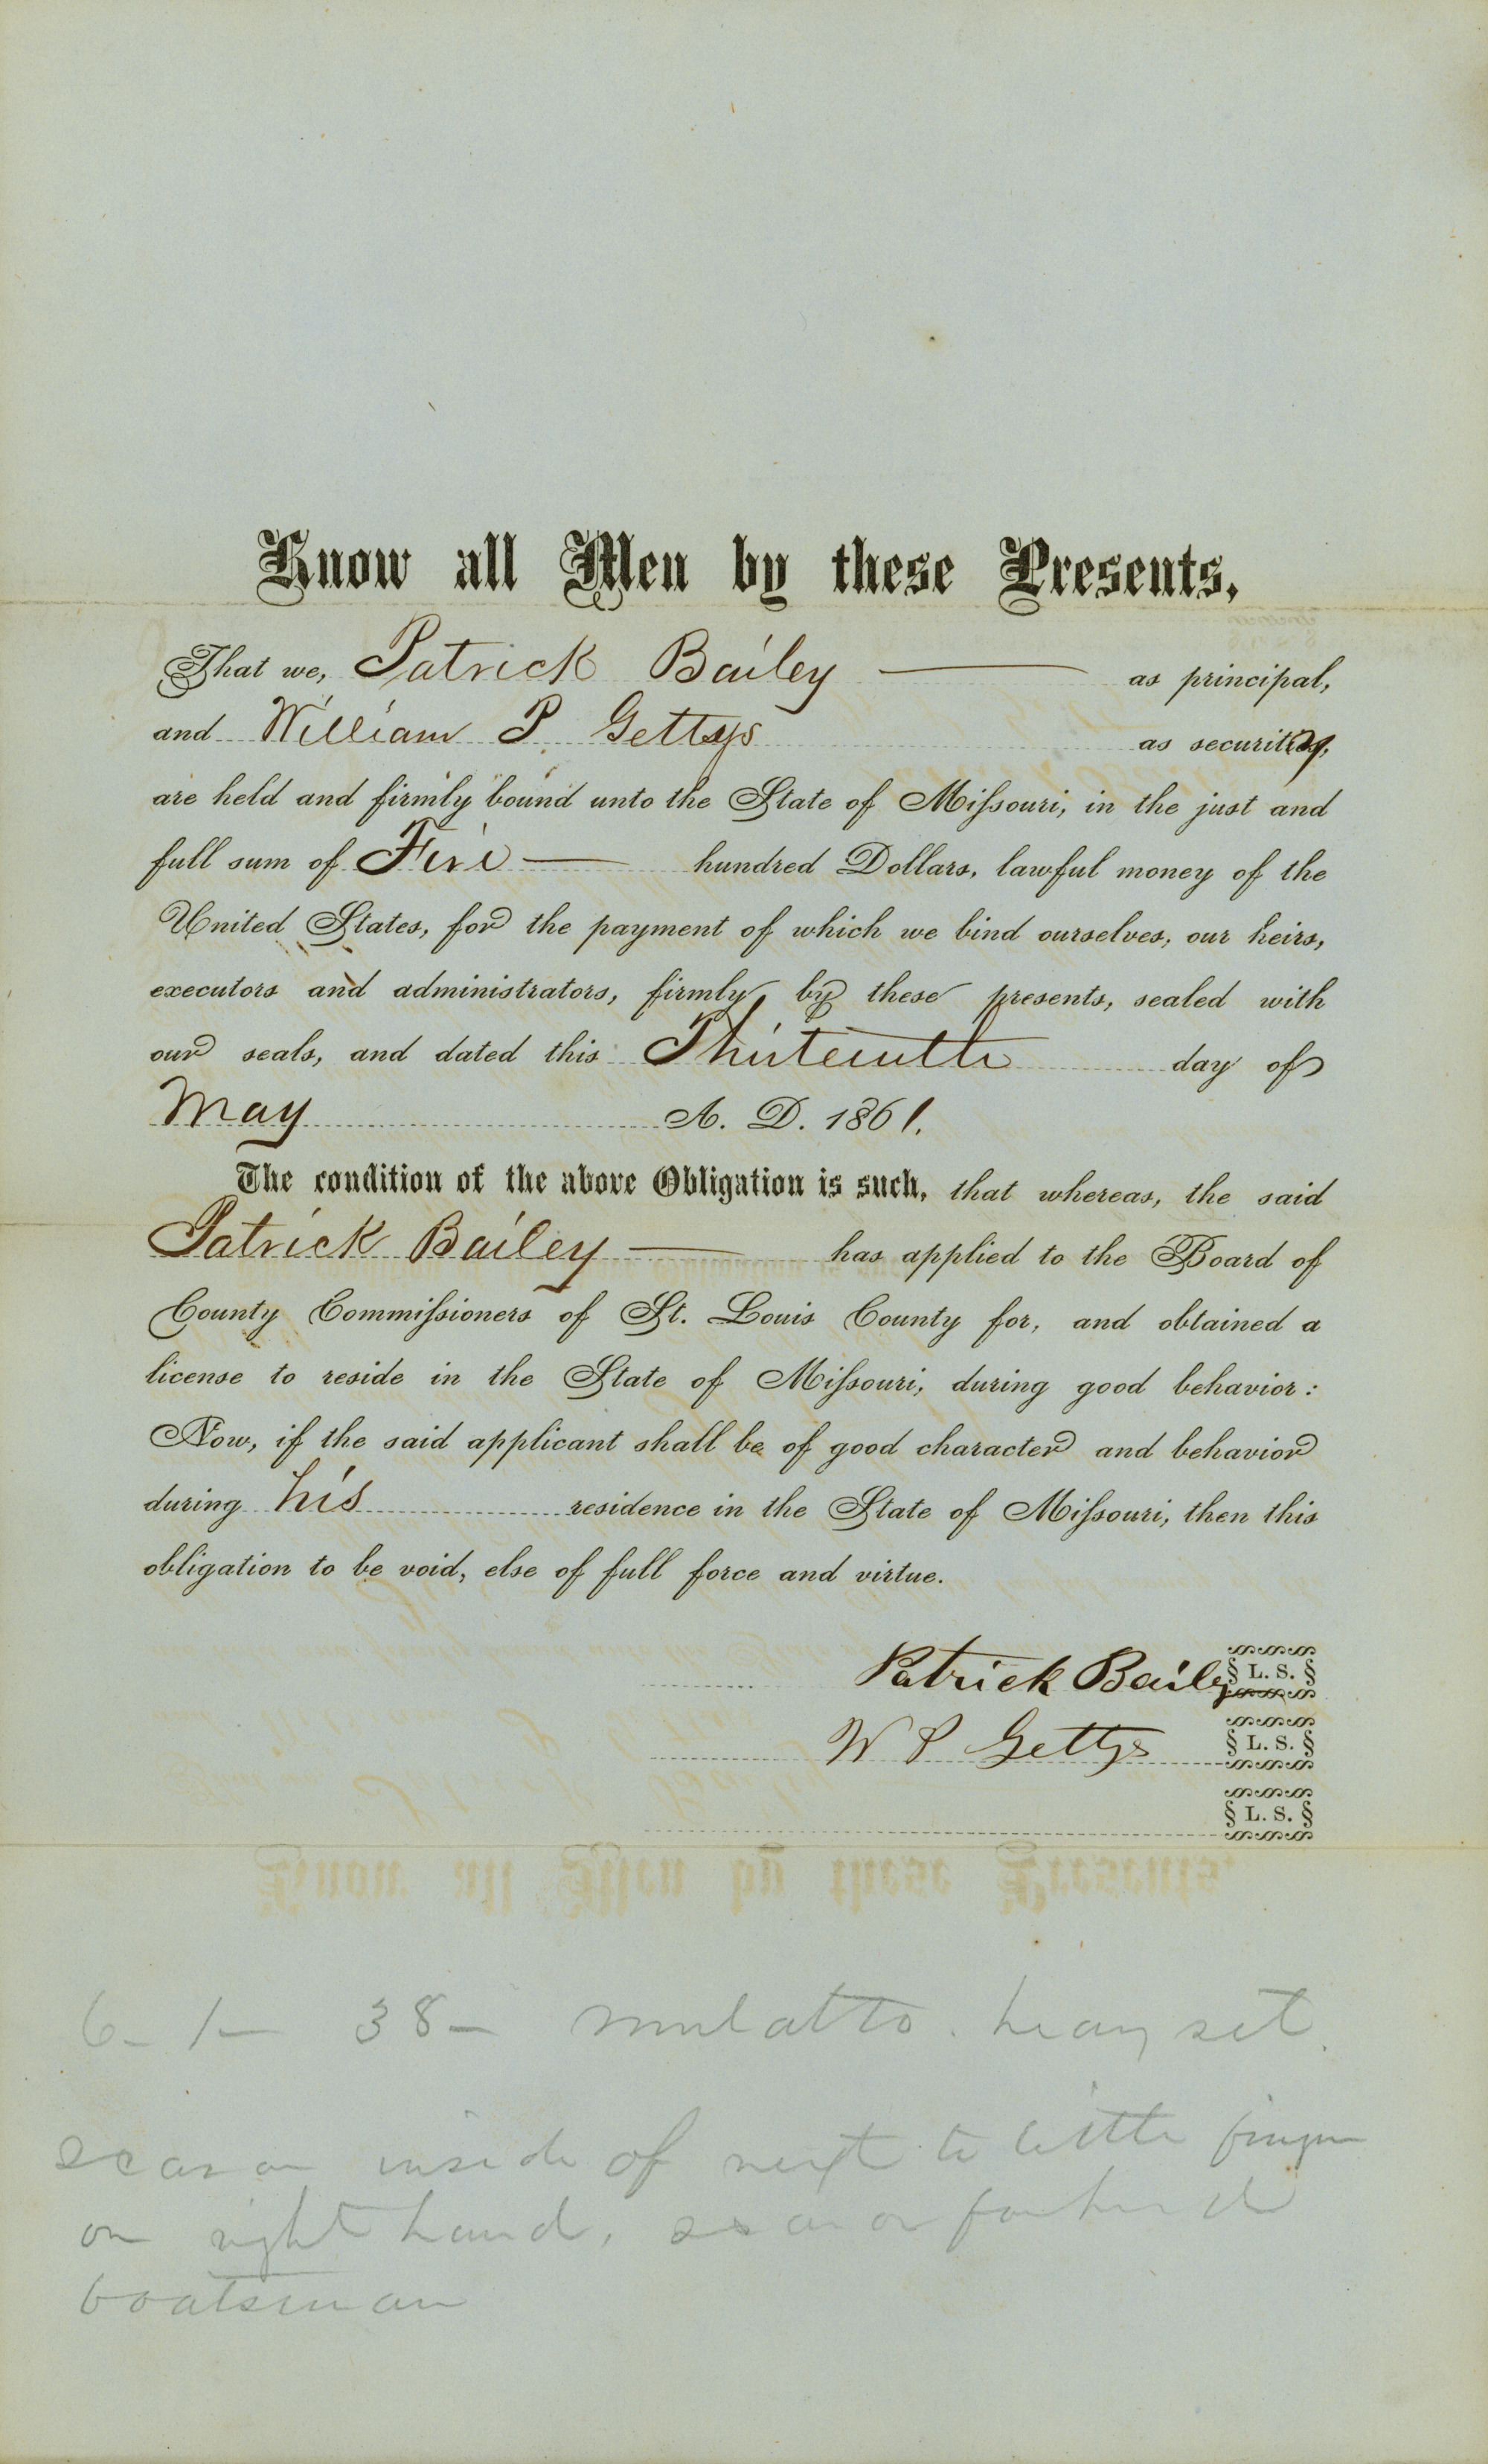 Know all Men by these Presents,
That we, Patrick Bailey — as principal,
and William P Gettys as security,
are held and firmly bound unto the State of Missouri, in the just and
full sum of Five — hundred Dollars, lawful money of the
United States, for the payment of which we bind ourselves, our heirs,
executors and administrators, firmly by these presents, sealed with
our seals, and dated this Thirteenth day of
May A. D. 1861.
The condition of the above Obligation is such, that whereas, the said
Patrick Bailey — has applied to the Board of
County Commissioners of St. Louis County for, and obtained a
license to reside in the State of Missouri, during good behavior:
Now, if the said applicant shall be of good character and behavior
during his residence in the State of Missouri, then this
obligation to be void, else of full force and virtue.
Patrick Baily § L. S. §
W P Gettys § L. S. §
§ L. S. §
6 - 1 - 38 - mulatto. heavy set.
scar on inside of next to little finger
on right hand, scar on forhead
boatsman